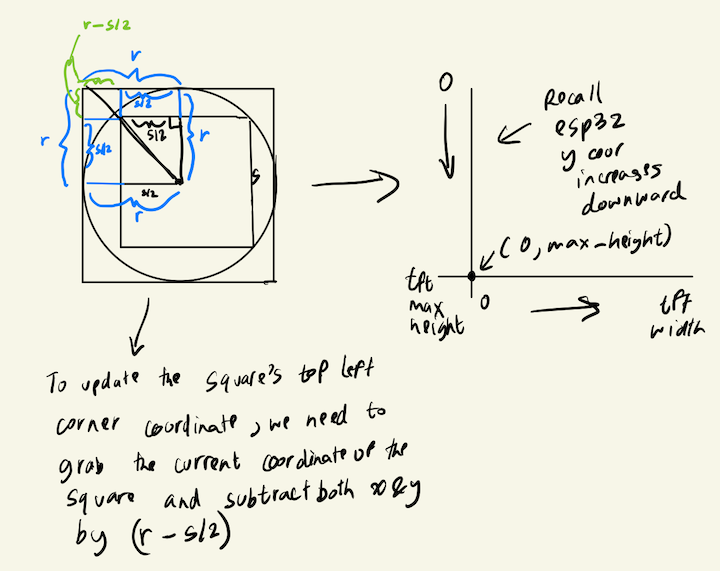 r-s/2
r
s/2
s/2
r
s/2
r
s
s/2
r
0
Recall
esp32
y coor
increases
downward
(0, max-height)
tft
max
height
0
tft
width
To update the square's top left
corner coordinate, we need to
grab the current coordinate of the
square and subtract both x & y
by (r - s/2)